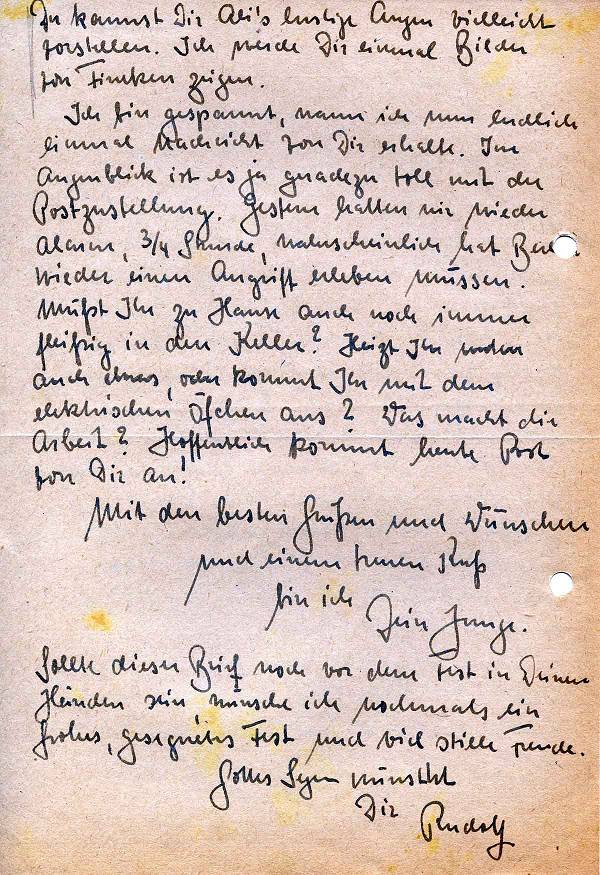 Du kannst Dir Abi's lustige Augen vielleicht
vorstellen. Ich werde Dir einmal Bilder
von Finnken zeigen.
Ich bin gespannt, wann ich nun endlich
einmal Nachricht von Dir erhalte. Im
Augenblick ist es ja geradezu toll mit der
Postzustellung. Gestern hatten wir wieder
Alarm, 3/4 Stunde, wahrscheinlich hat
wieder einen Angriff erleben müssen.
Müßt Ihr zu Hause auch noch immer
fleißig in den Keller? Heizt Ihr
auch etwas, oder kommt Ihr mit dem
elektrischen Öfchen aus? Was macht die
Arbeit? Hoffentlich kommt heute Post
von Dir an!
Mit den besten Grüßen und Wünschen
und einem treuen Kuß
bin ich
Dein Junge.
Sollte dieser Brief noch vor dem Fest in Deinen
Händen sein wünsche ich nochmals ein
frohes, gesegnetes Fest und viel stille Freude.
Gottes Segen wünscht
Dir
Rudolf